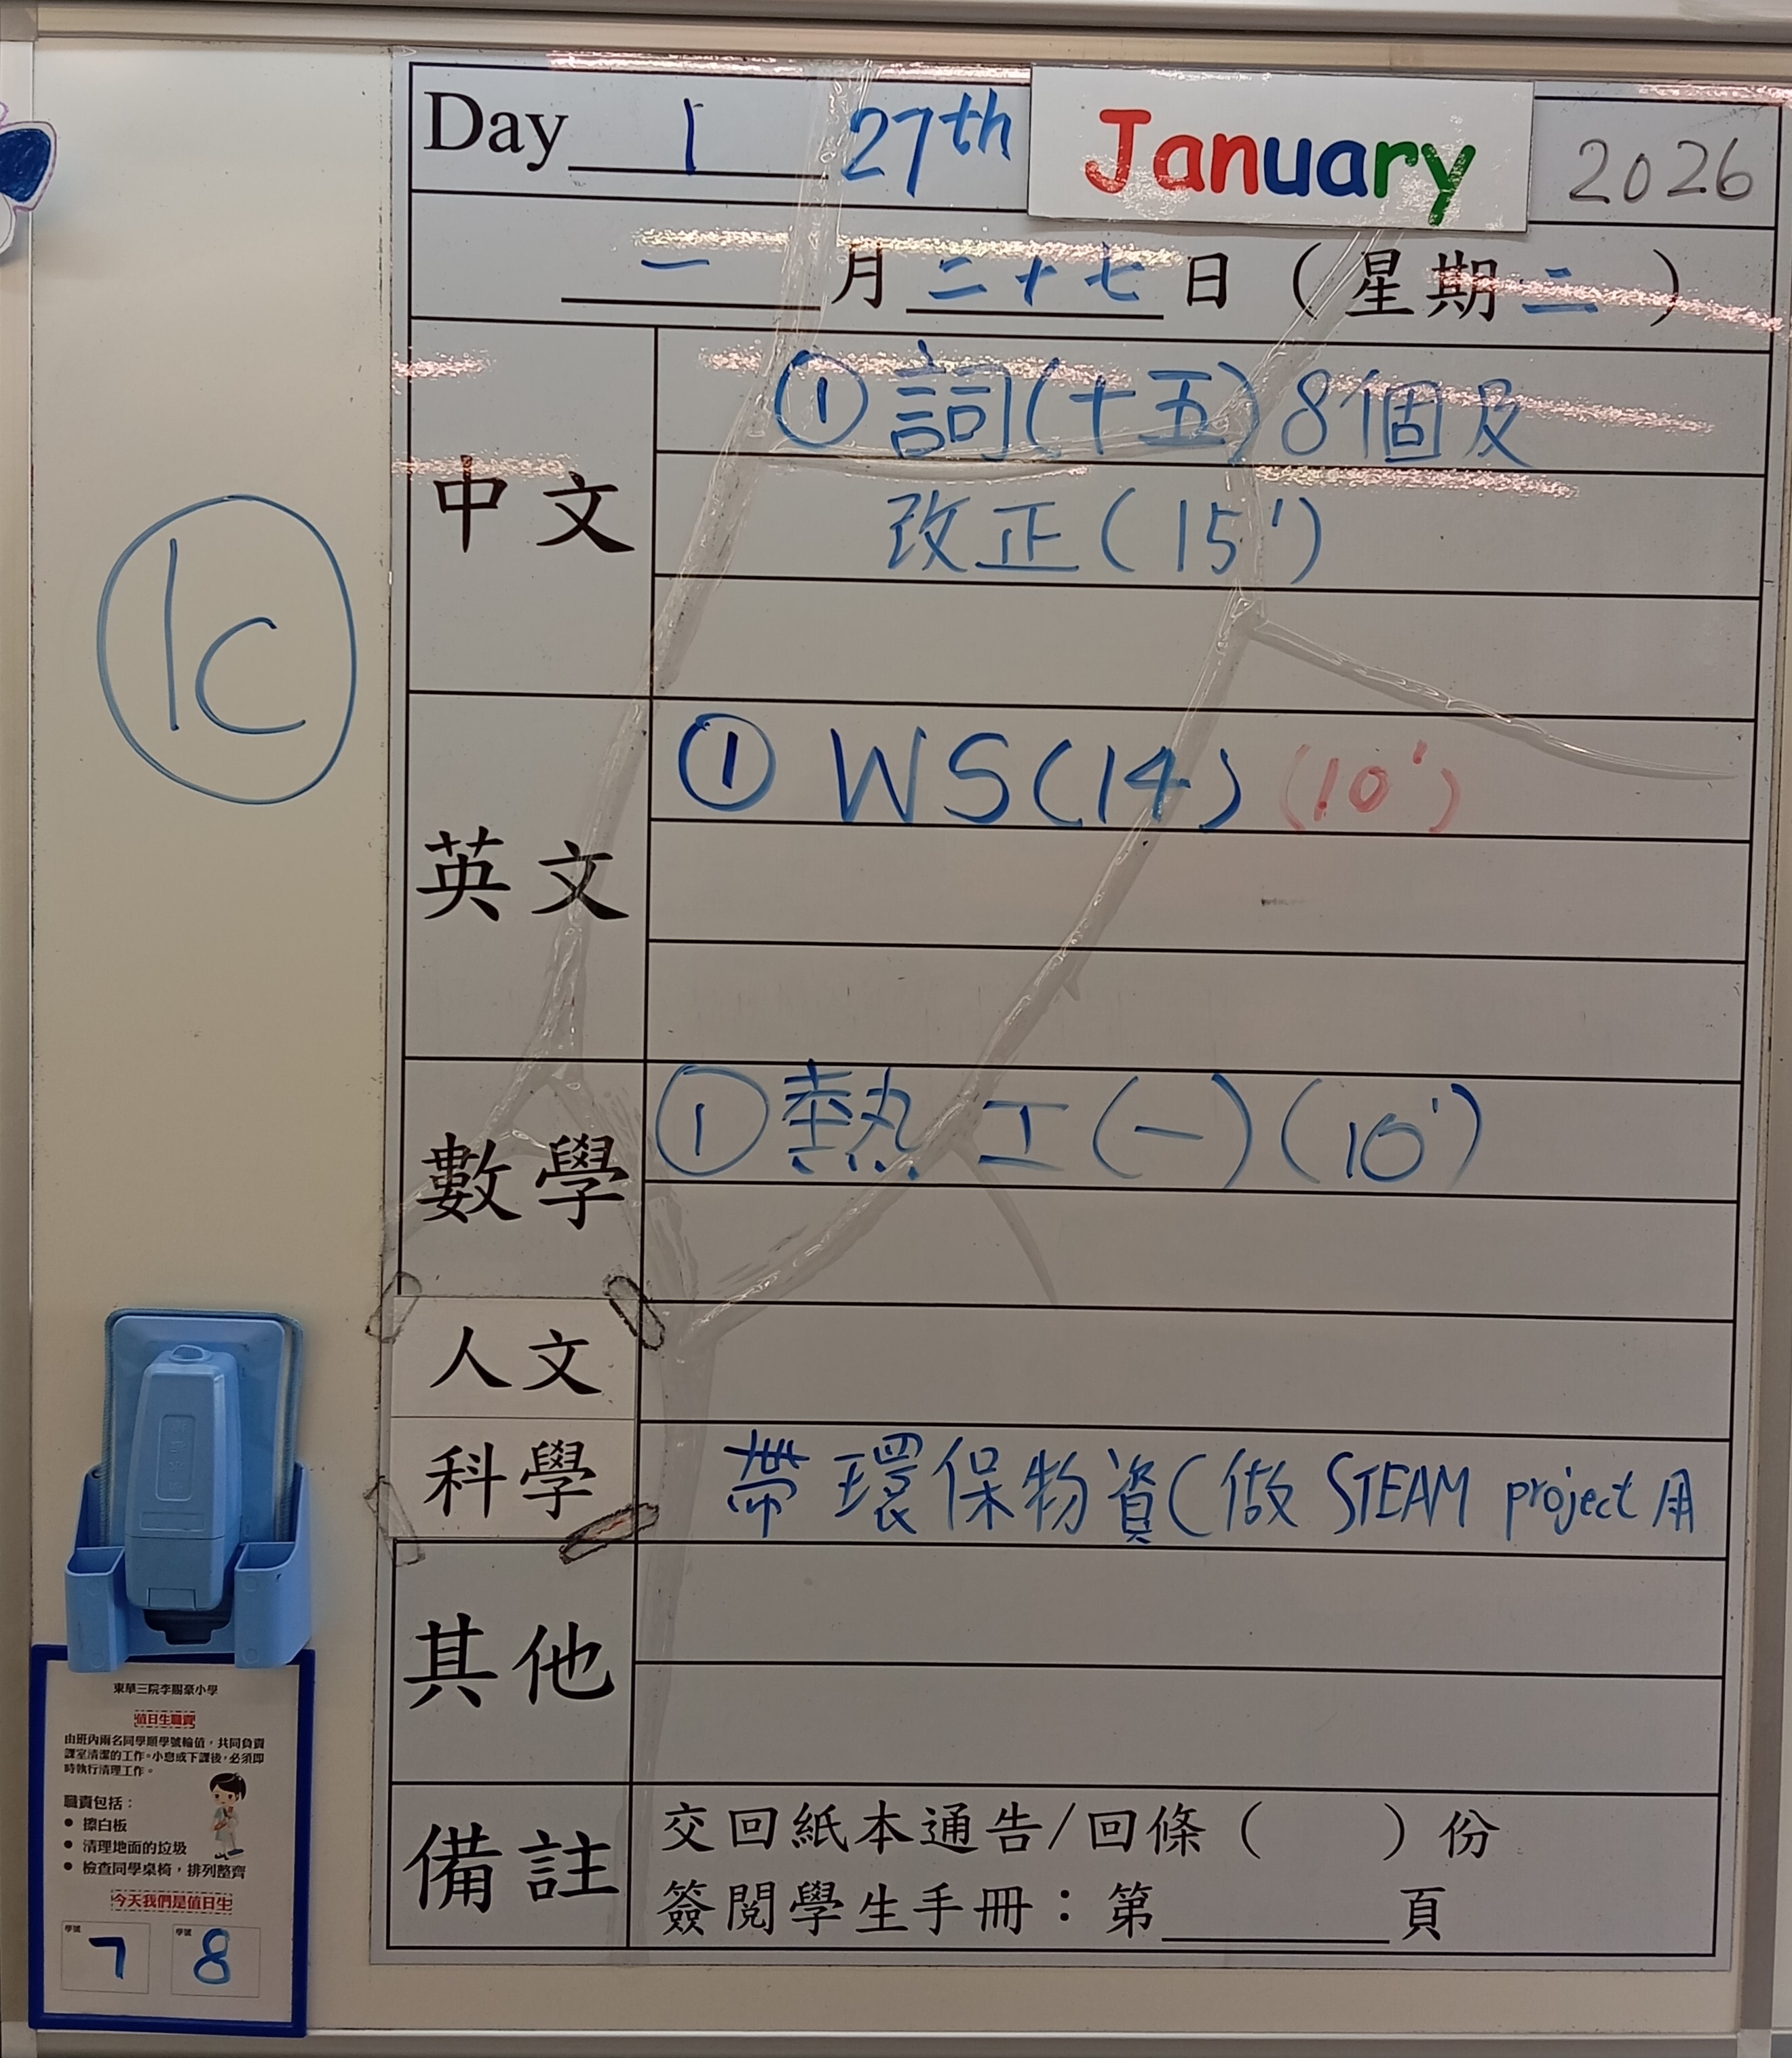 Day 1 27th January 2026
一 月 二十七 日 (星期二)
中文
① 詞(十五)8個及
改正(15')
1C
英文
① WS(14) (10')
數學
① 熱工(一)(10')
人文
科學
帶環保物資(做 STEAM project 用
其他
備註
交回紙本通告/回條( )份
簽閱學生手冊:第______頁
東華三院李賜豪小學
值日生職責
由班內兩名同學順學號輪值,共同負責
課室清潔的工作。小息或下課後,必須即
時執行清理工作。
職責包括:
● 擦白板
● 清理地面的垃圾
● 檢查同學桌椅,排列整齊
今天我們是值日生
學號 7 學號 8